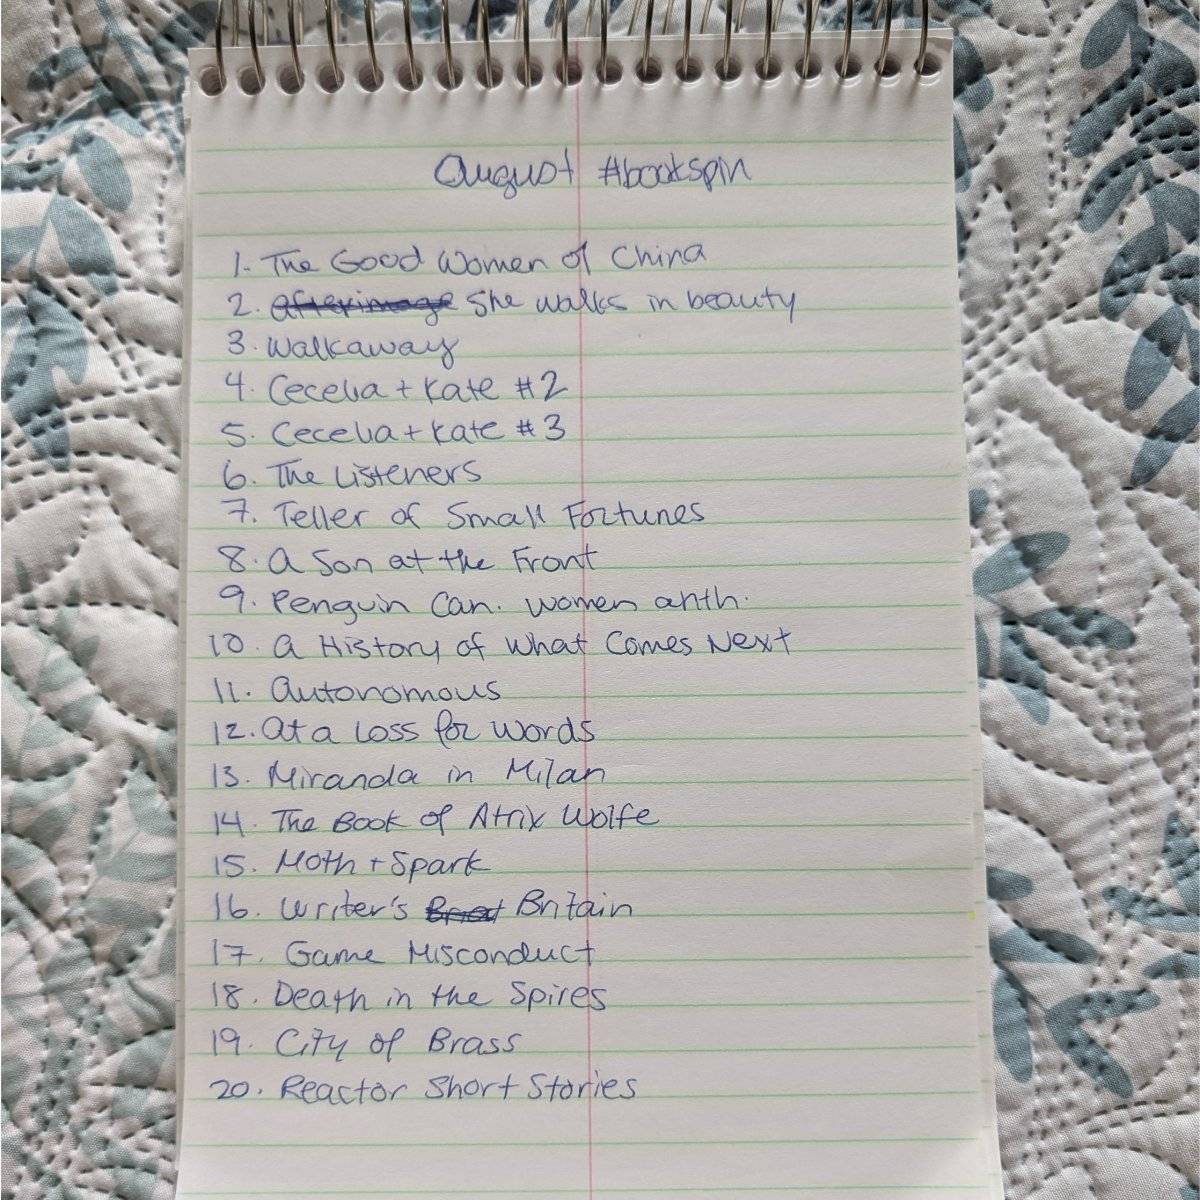 August #bookspin
1. The Good Women of China
2. Afterimage She walks in beauty
3. Walkaway
4. Cecelia + Kate #2
5. Cecelia + Kate #3
6. The Listeners
7. Teller of Small Fortunes
8. A Son at the Front
9. Penguin Can. women anth.
10. A History of What Comes Next
11. Autonomous
12. At a Loss for Words
13. Miranda in Milan
14. The Book of Atrix Wolfe
15. Moth + Spark
16. Writer's Britain
17. Game Misconduct
18. Death in the Spires
19. City of Brass
20. Reactor Short Stories